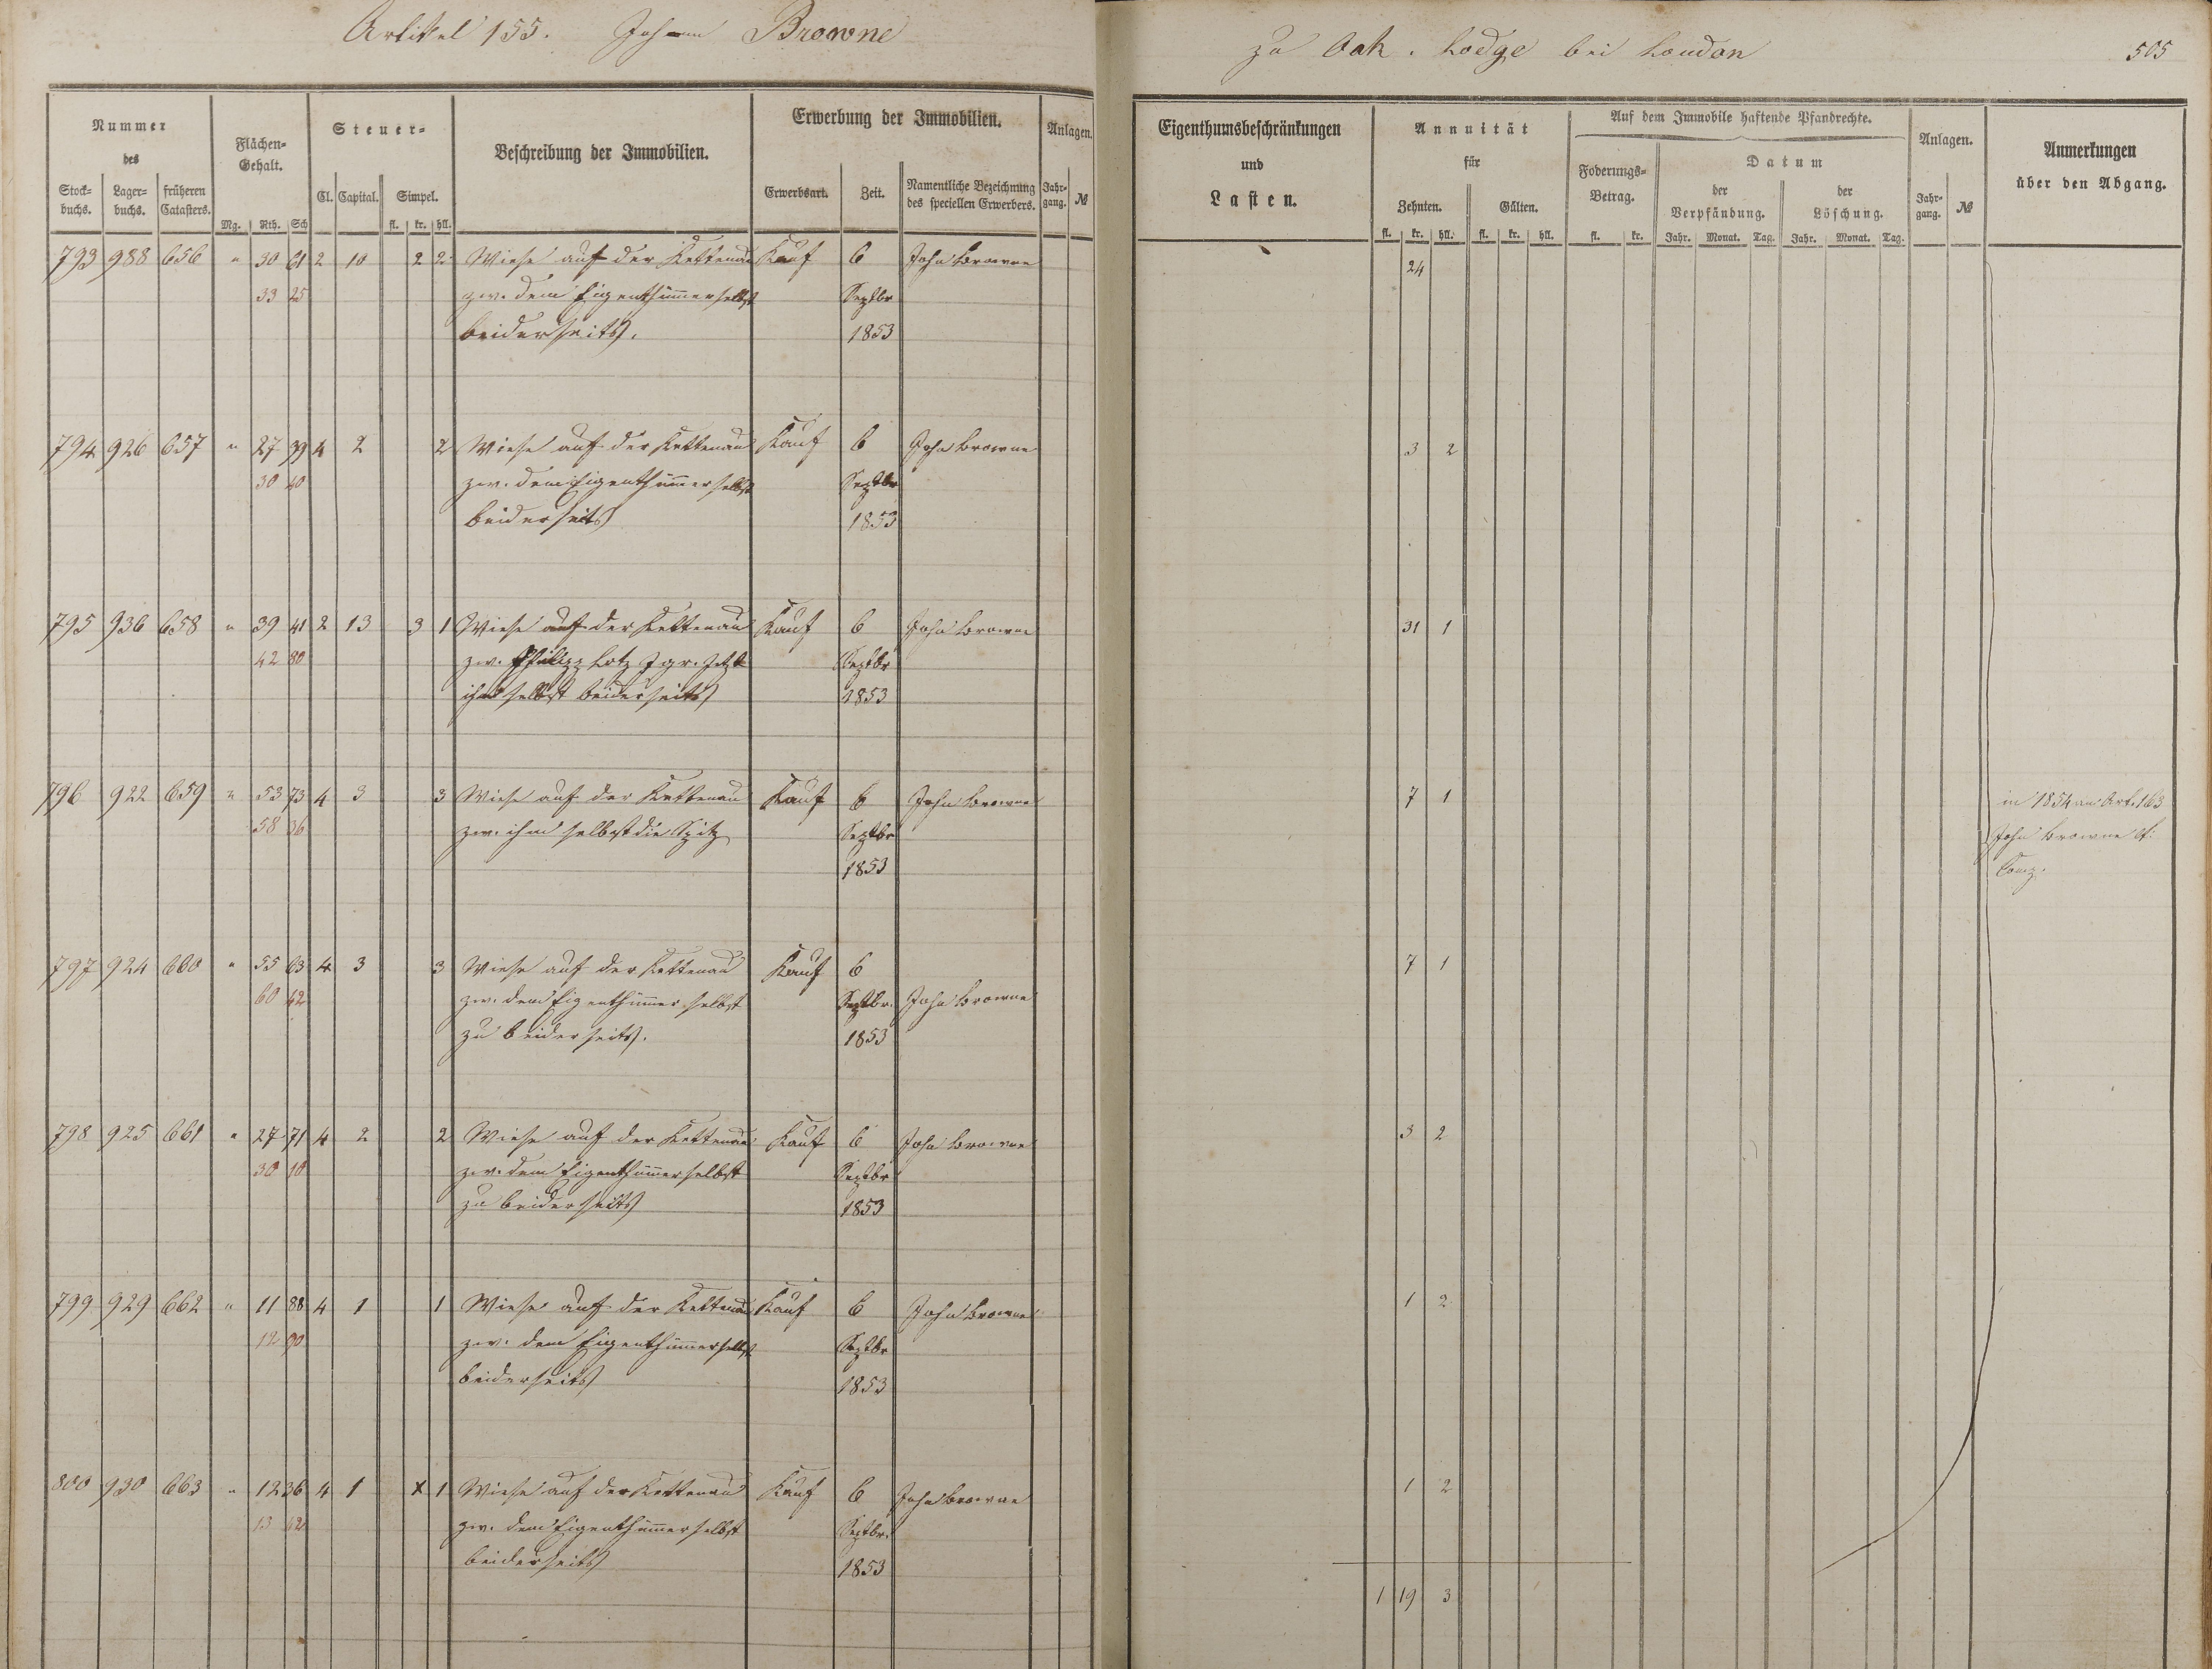 Artikel 155. Johann Browne
Nummer des
Stock-buchs. Lager-buchs. früheren Catasters.
Flächen-Gehalt.
Mg. Rth. Sch
Steuer-
Cl. Capital. Simpel.
fl. kr. hll.
Beschreibung der Immobilien.
Erwerbung der Immobilien.
Erwerbsart. Zeit. Namentliche Bezeichnung des speciellen Erwerbers.
Anlagen.
Jahr-gang. №
793 988 656 " 30 61 2 10 2 2 Wiese auf der Kettenau Kauf 6 John Browne
33 25 zw. dem Eigenthümer selbst Septbr
beiderseits. 1853
794 926 657 " 27 39 4 2 2 Wiese auf der Kettenau Kauf 6 John Browne
30 40 zw. dem Eigenthümer selbst Septbr
beiderseits 1853
795 936 658 " 39 41 2 13 3 1 Wiese auf der Kettenau Kauf 6 John Browne
42 80 zw. Philipp Lotz Jgr. jetzt Septbr
ihm selbst beiderseits 1853
796 922 659 " 53 73 4 3 3 Wiese auf der Kettenau Kauf 6 John Browne
58 36 zw. ihm selbst die Spitz Septbr
1853
797 924 660 " 55 63 4 3 3 Wiese auf der Kettenau Kauf 6
60 42 zw. dem Eigenthümer selbst Septbr. John Browne
zu beiderseits. 1853
798 925 661 " 27 71 4 2 2 Wiese auf der Kettenau Kauf 6 John Browne
30 10 zw. dem Eigenthümer selbst Septbr
zu beiderseits 1853
799 929 662 " 11 88 4 1 1 Wiese auf der Kettenau Kauf 6 John Browne
12 90 zw. dem Eigenthümer selbst Septbr
beiderseits 1853
800 930 663 " 12 36 4 1 x 1 Wiese auf der Kettenau Kauf 6 John Browne
13 42 zw. dem Eigenthümer selbst Septbr.
beiderseits 1853
zu Oak. Lodge bei London 505
Eigenthumsbeschränkungen
und
Lasten.
Annuität
für
Zehnten. Gülten.
fl. kr. hll. fl. kr. hll.
Auf dem Immobile haftende Pfandrechte.
Foderungs-Betrag.
fl. kr.
Datum
der Verpfändung. der Löschung.
Jahr. Monat. Tag. Jahr. Monat. Tag.
Anlagen.
Jahr-gang. №
Anmerkungen
über den Abgang.
24
3 2
31 1
7 1 in 1854 an Art. 163
John Browne &
Comp.
7 1
3 2
1 2
1 2
1 19 3